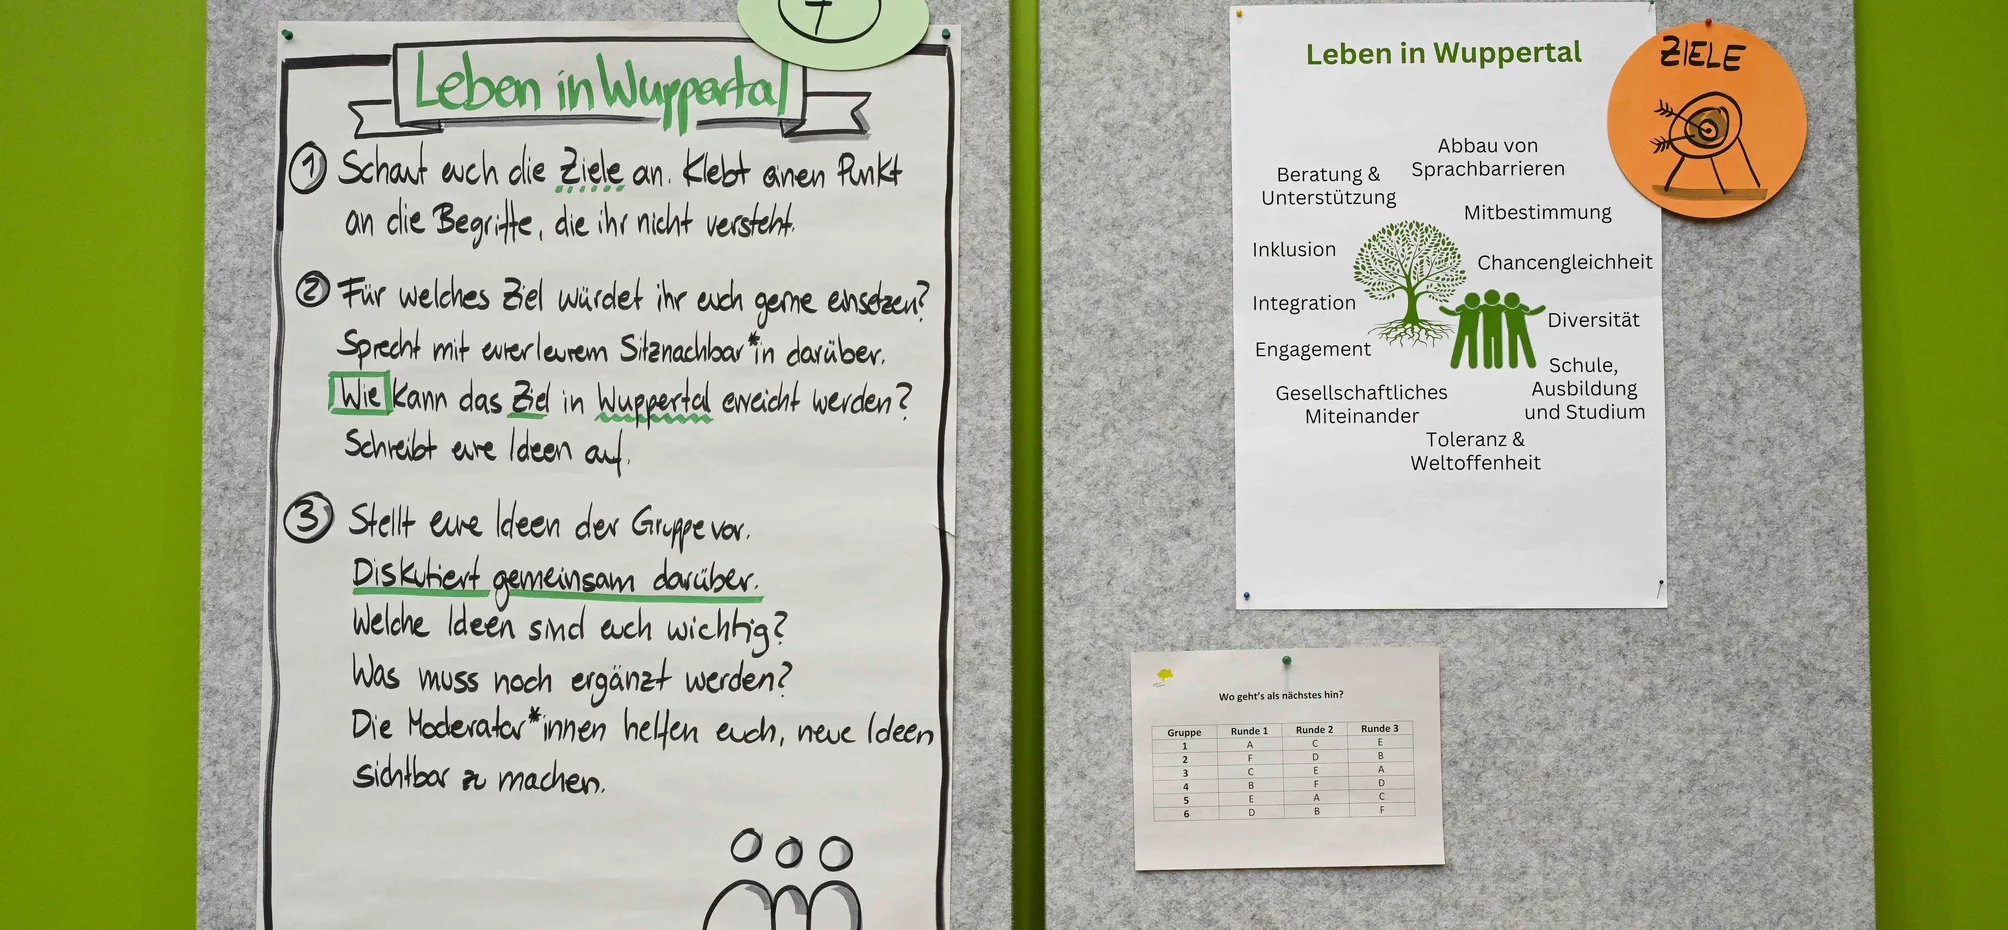 Leben in Wuppertal
1 Schaut euch die Ziele an. Klebt einen Punkt
an die Begriffe, die ihr nicht versteht.
2 Für welches Ziel würdet ihr euch gerne einsetzen?
Sprecht mit eurer/eurem Sitznachbar*in darüber.
Wie kann das Ziel in Wuppertal erreicht werden?
Schreibt eure Ideen auf.
3 Stellt eure Ideen der Gruppe vor.
Diskutiert gemeinsam darüber.
Welche Ideen sind euch wichtig?
Was muss noch ergänzt werden?
Die Moderator*innen helfen euch, neue Ideen
sichtbar zu machen.
Leben in Wuppertal
ZIELE
Abbau von
Sprachbarrieren
Beratung &
Unterstützung
Mitbestimmung
Inklusion
Chancengleichheit
Integration
Diversität
Engagement
Schule,
Ausbildung
und Studium
Gesellschaftliches
Miteinander
Toleranz &
Weltoffenheit
Wo geht's als nächstes hin?
Gruppe Runde 1 Runde 2 Runde 3
1 A C E
2 F D B
3 C E A
4 B F D
5 E A C
6 D B F